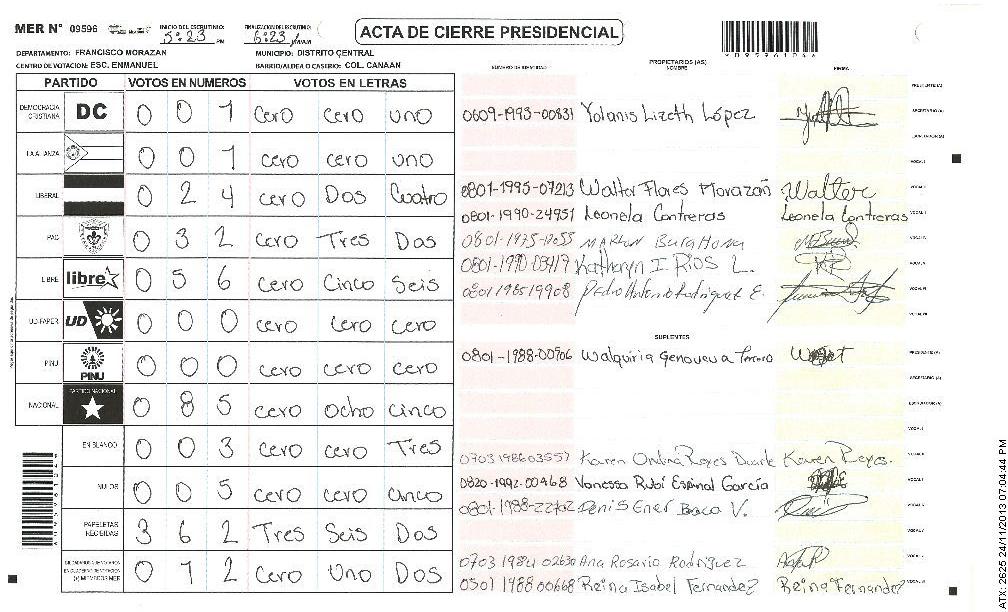 MER N° 09596 INICIO DEL ESCRUTINIO: 5:23 PM FINALIZACION DEL ESCRUTINIO: 6:23 ACTA DE CIERRE PRESIDENCIAL
DEPARTAMENTO: FRANCISCO MORAZAN MUNICIPIO: DISTRITO CENTRAL
CENTRO DE VOTACION: ESC. ENMANUEL BARRIO/ALDEA O CASERIO: COL. CANAAN
PARTIDO VOTOS EN NUMEROS VOTOS EN LETRAS
DEMOCRACIA CRISTIANA DC 0 0 1 cero cero uno
LA ALIANZA 0 0 1 cero cero uno
LIBERAL 0 2 4 cero Dos Cuatro
PAC 0 3 2 cero Tres Dos
LIBRE libre 0 5 6 cero Cinco Seis
UD-FAPER UD 0 0 0 cero cero cero
PINU PINU 0 0 0 cero cero cero
NACIONAL PARTIDO NACIONAL 0 8 5 cero ocho cinco
EN BLANCO 0 0 3 cero cero Tres
NULOS 0 0 5 cero cero cinco
PAPELETAS RECIBIDAS 3 6 2 Tres Seis Dos
0 1 2 cero Uno Dos
NUMERO DE IDENTIDAD PROPIETARIOS (AS) NOMBRE FIRMA
PRESIDENTE (A)
0609-1993-00831 Yolanis Lizeth López SECRETARIO (A)
ESCRUTADOR (A)
VOCAL I
0801-1995-07213 Walter Flores Morazan Walter VOCAL II
0801-1990-24951 Leonela Contreras Leonela Contreras VOCAL III
MARLON Burahona VOCAL IV
0801-1990-03417 Katheryn I RIOS L. VOCAL V
0801198519908 Pedro Antonio Rodriguez E. VOCAL VI
VOCAL VII
SUPLENTES
0801-1988-00706 Walquiria Genoveva PRESIDENTE (A)
SECRETARIO (A)
ESCRUTADOR (A)
VOCAL I
0703198603557 Karen Ondina Reyes Duarte Karen Reyes. VOCAL II
0820-1992-00468 Vanessa Rubí Espinal García VOCAL III
0801-1988-22762 Denis Ener Baca V. VOCAL IV
VOCAL V
0703 1984 02630 Ana Rosario Rodriguez VOCAL VI
0501 1988 00668 Reina Isabel Fernandez Reina Fernandez VOCAL VII
ATX: 2625 24/11/2013 07:04:44 PM